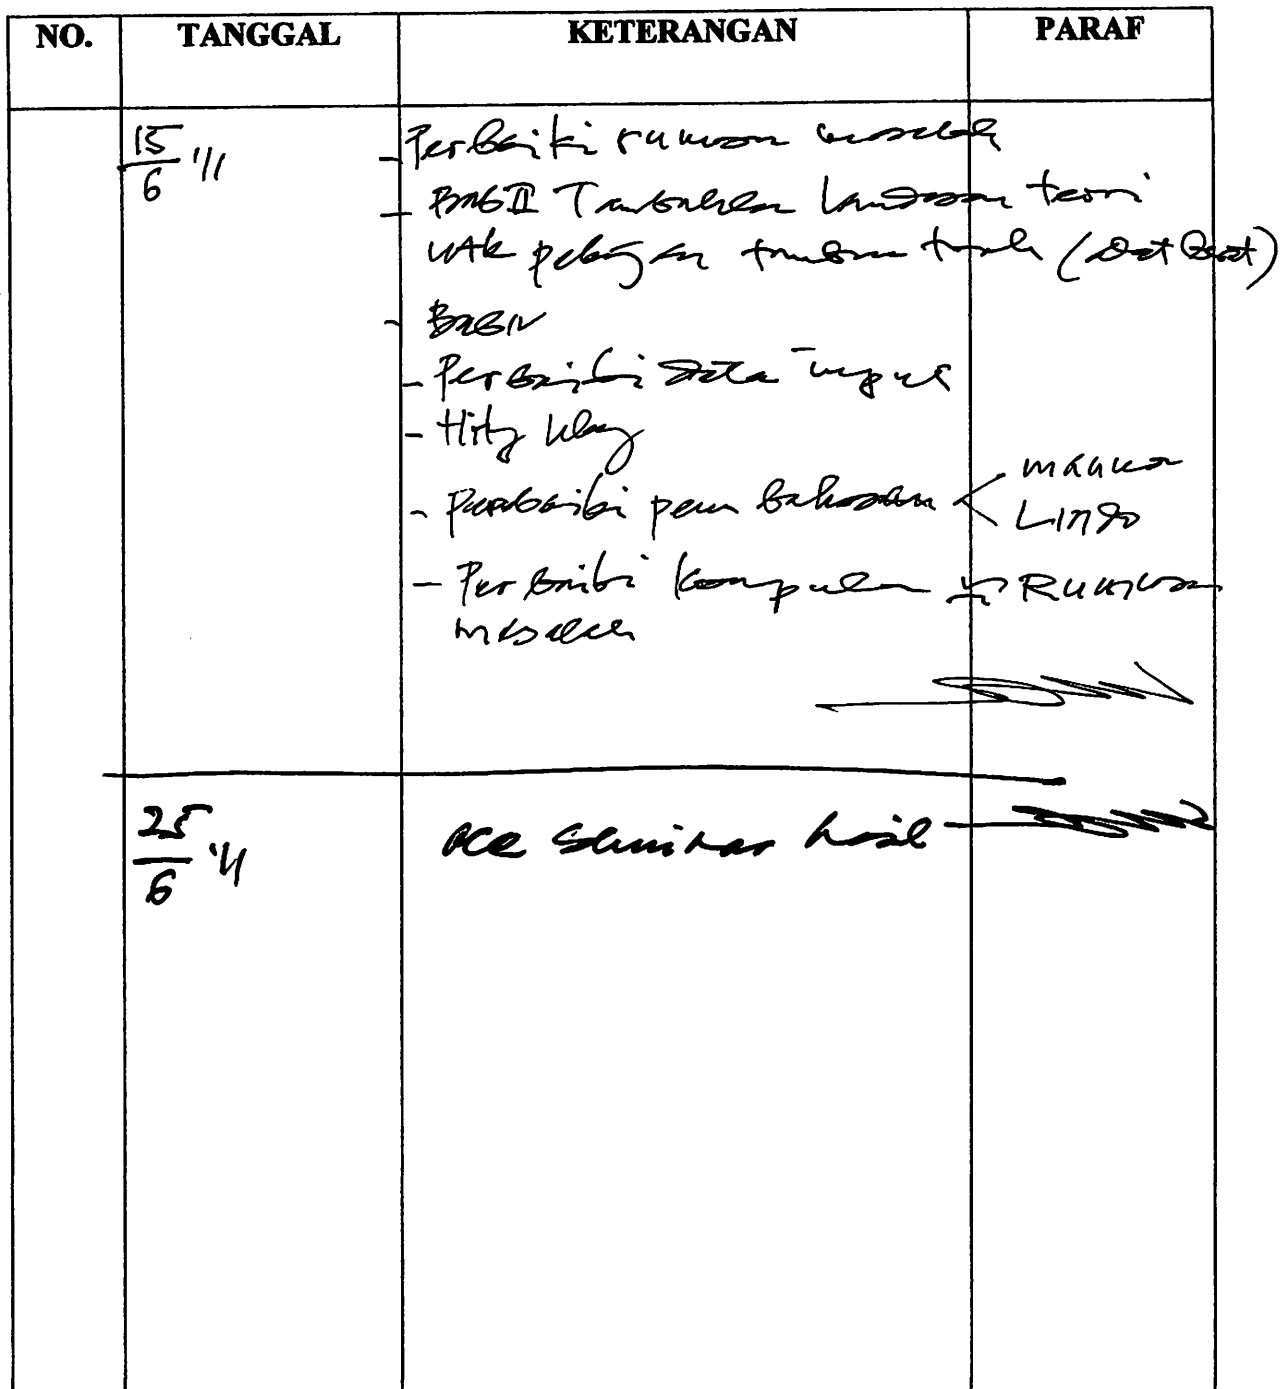 NO. TANGGAL KETERANGAN PARAF
15/6 '11
- Perbaiki rumusan masalah
- BAB II Tambahkan landasan teori
utk pekerjaan tanah (alat berat)
- BAB IV
- Perbaiki data input
- Hitung ulang
- Perbaiki pembahasan < manual
Lindo
- Perbaiki kesimpulan Rumusan
masalah
25/6 '11 acc seminar hasil